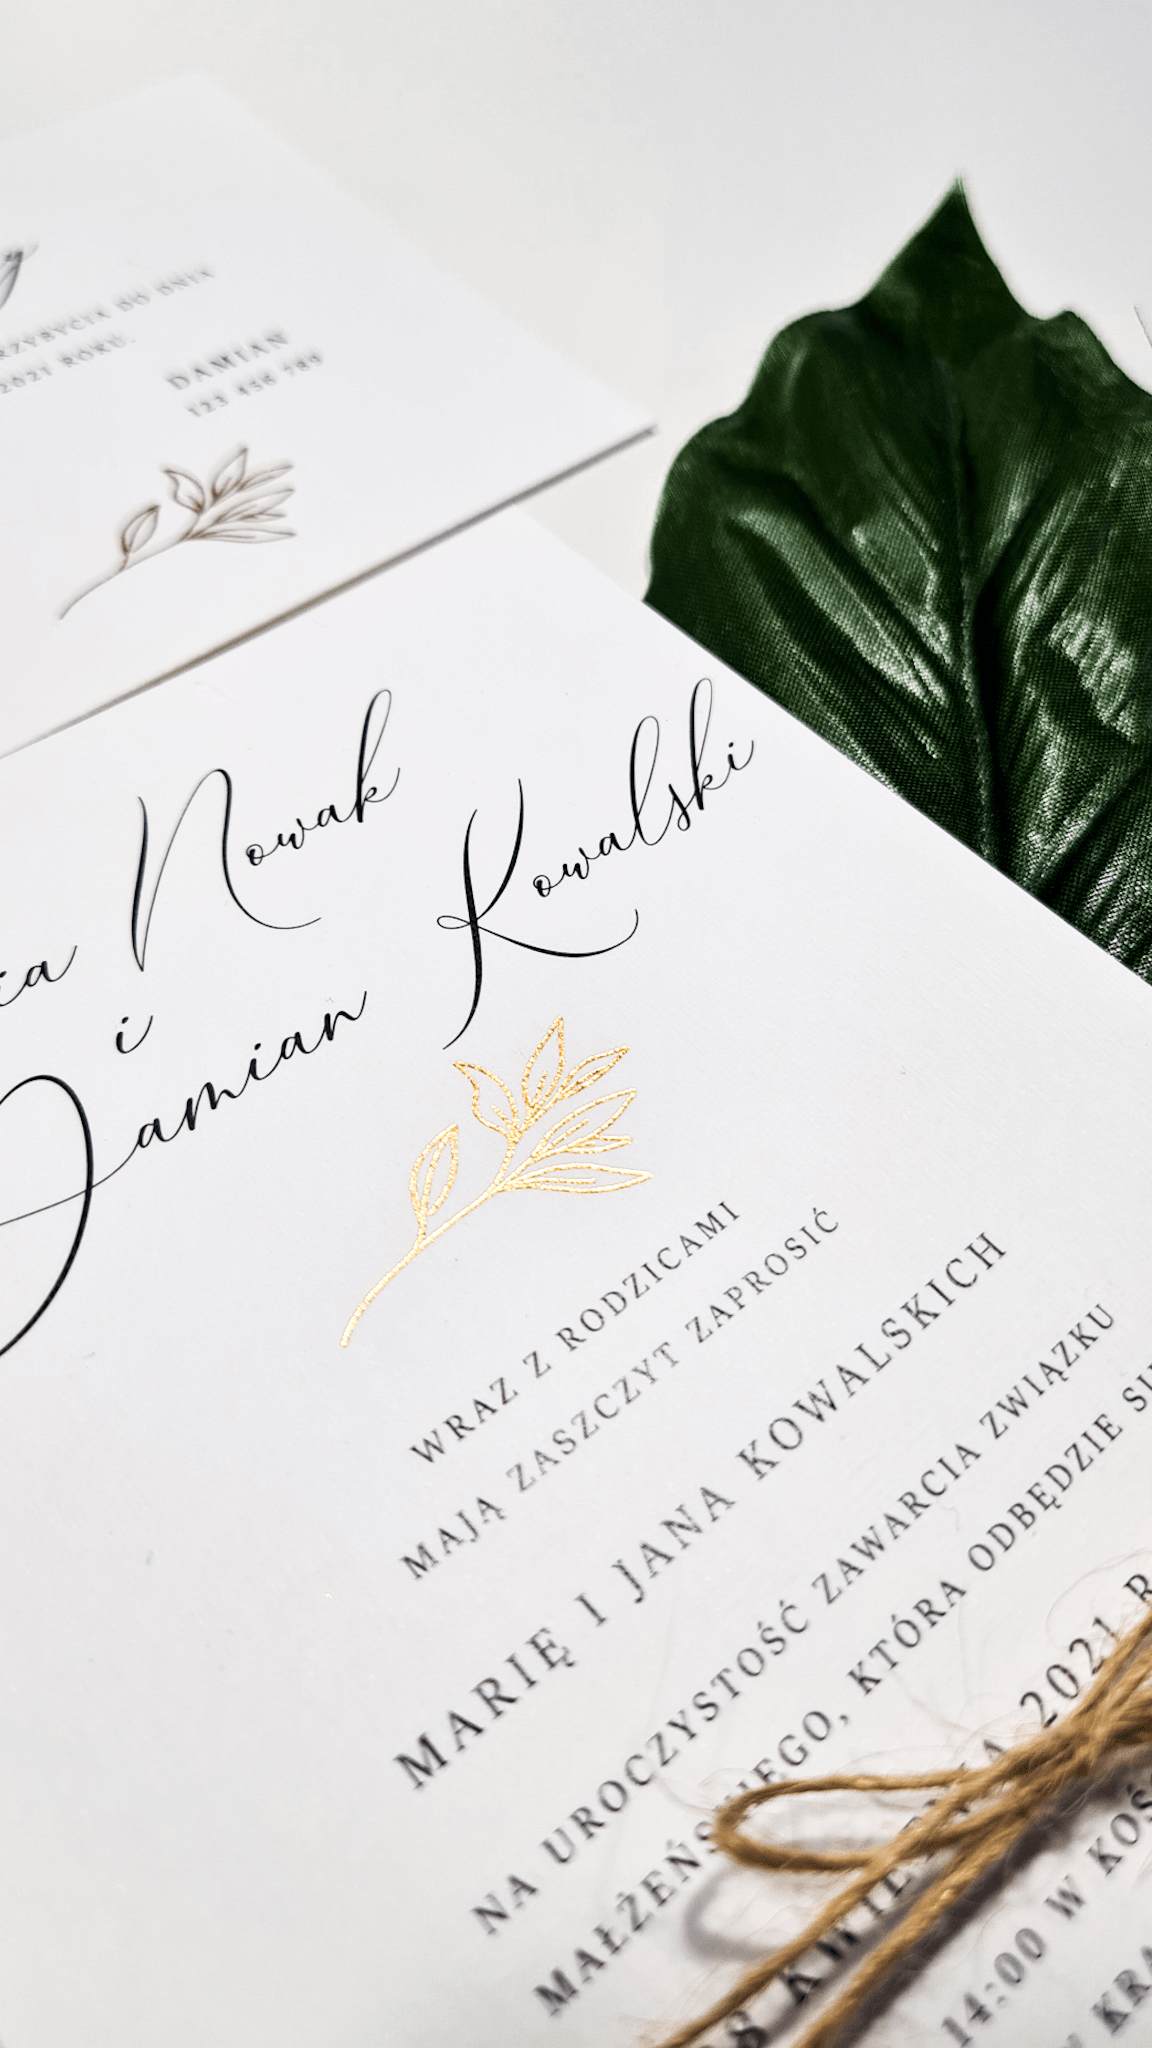 DO DNIA
2021 ROKU.
DAMIAN
123 456 789
Nowak
i
Damian Kowalski
WRAZ Z RODZICAMI
MAJĄ ZASZCZYT ZAPROSIĆ
MARIĘ I JANA KOWALSKICH
NA UROCZYSTOŚĆ ZAWARCIA ZWIĄZKU
KTÓRA ODBĘDZIE
2021
14:00 W